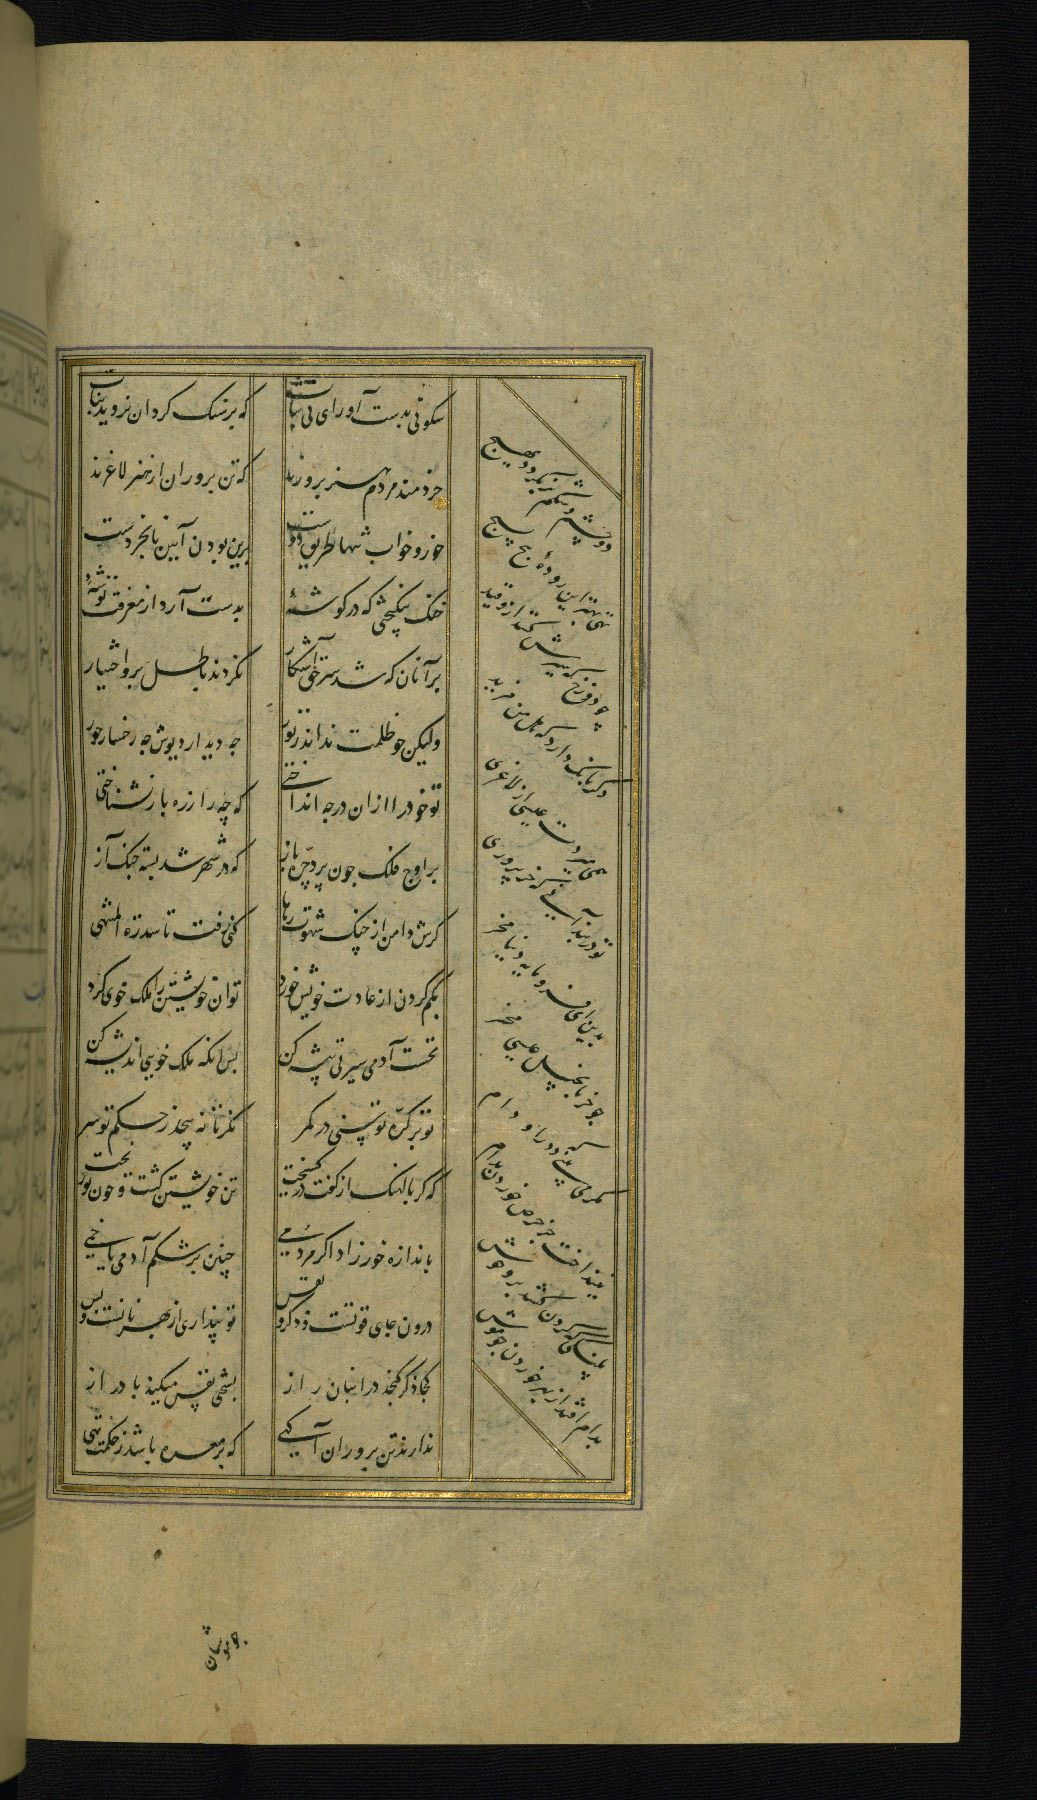 سکونی بدست آور ای بی ثبات که بر سنک کردان نروید نبات
خردمند مردم هنر پرورند که تن پروران از هنر لاغرند
خور و خواب تنها طریق ددست برین بودن آیین نابخردست
خنک نیکبختی که در کوشهٔ بدست آرد از معرفت توشهٔ
بر آنان که شد سر حق آشکار نکردند باطل برو اختیار
ولیکن جو ظلمت نداند ز نور جه دیدار دیوش جه رخسار حور
تو خود را ازان درجه انداختی که چه را ز ره باز نشناختی
بر اوج فلک جون پرد جره باز که در شهپرش بستهٔ سنک آز
کرش دامن از چنک شهوت رها کنی رفت تا سدرة المنتهی
بکم کردن از عادت خویش خورد توان خویشتن را ملک خوی کرد
نخست آدمی سیرتی پیشه کن پس انکه ملک خویی اندیشه کن
تو بر کرّهٔ توسنی در کمر نکر تا نه پیجد ز حکم تو سر
که کر پالهنک از کفت در کسیخت تن خویشتن کشت و خون تو ریخت
باندازه خور زاد اکر مردمی چنین پر شکم آدمی یا خمی
درون جای قوتست و ذکر و نفس تو پنداری از بهر نانست و بس
کجا ذکر کنجد در انبان راز بسختی نفس میکند پا دراز
ندارند تن پروران آکهی که پر معده باشد ز حکمت تهی
دو چشم و شکم پر نکردد بهیج
تهی بهتر این رودهٔ پیج پیج
چو دوزخ که سیرش کنند از وقید
دکر بانک دارد که هل من مزید
همی میردت عیسی از لاغری
تو در بند آنی که خر پروری
بدین ای فرومایه دنیا مخر
جو خر بانجیل عیسی مخر
مکر می نبینی که دد را و دام
نینداخت جز حرص خوردن بدام
پلنکی که کردن کشد بر وحوش
بدام افتد از بهر خوردن جو موش
جو موشان